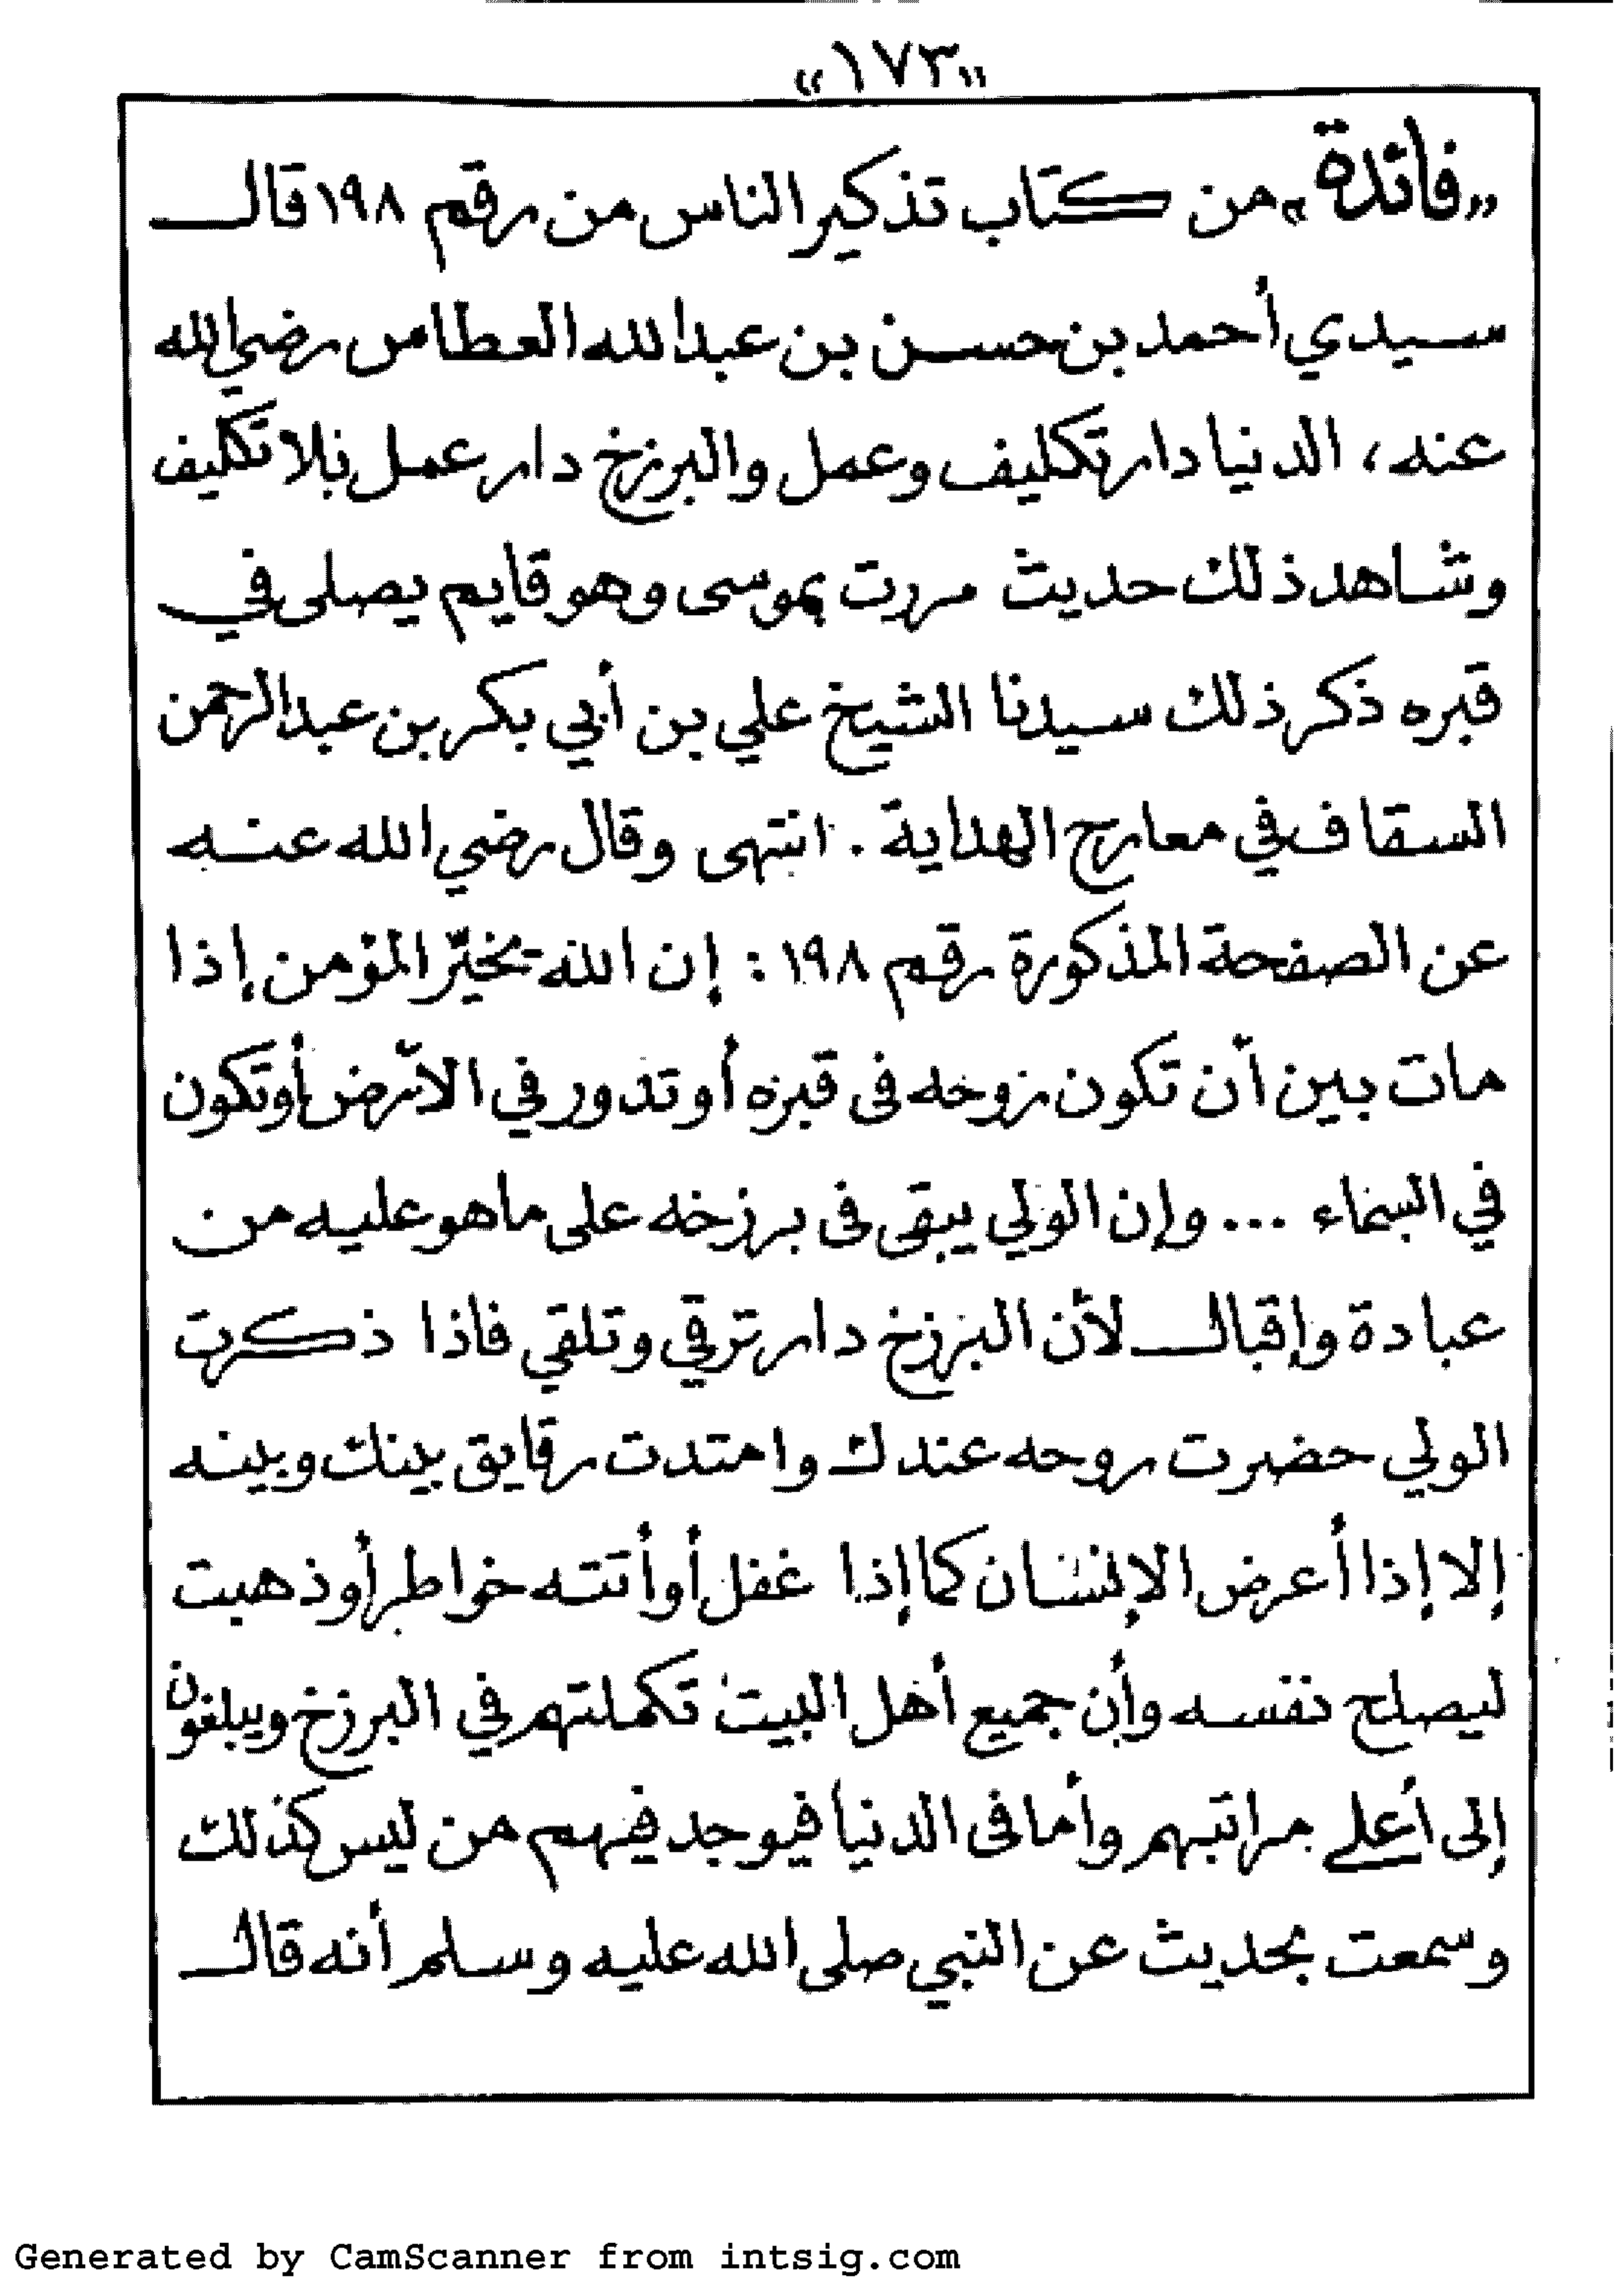 «١٧٣»
«فائدة» من كتاب تذكير الناس من رقم ١٩٨ قال
سيدي أحمد بن حسن بن عبد الله العطاس رضي الله
عنه، الدنيا دار تكليف وعمل والبرزخ دار عمل بلا تكليف
وشاهد ذلك حديث مررت بموسى وهو قايم يصلى في
قبره ذكر ذلك سيدنا الشيخ علي بن أبي بكر بن عبد الرحمن
السقاف في معارج الهداية . انتهى وقال رضي الله عنه
عن الصفحة المذكورة رقم ١٩٨ : إن الله يخيّر المؤمن إذا
مات بين أن تكون روحه فى قبره أو تدور في الأرض أو تكون
في السماء ... وإن الولي يبقى فى برزخه على ما هو عليه من
عبادة وإقبال لأن البرزخ دار ترقي وتلقي فاذا ذكرت
الولي حضرت روحه عندك وامتدت رقايق بينك وبينه
إلا إذا أعرض الإنسان كما إذا غفل أو أتته خواطر أو ذهبت
ليصلح نفسه وأن جميع أهل البيت تكملتهم في البرزخ ويبلغون
إلى أعلى مراتبهم وأما فى الدنيا فيوجد فيهم من ليس كذلك
وسمعت بحديث عن النبي صلى الله عليه وسلم أنه قال
Generated by CamScanner from intsig.com